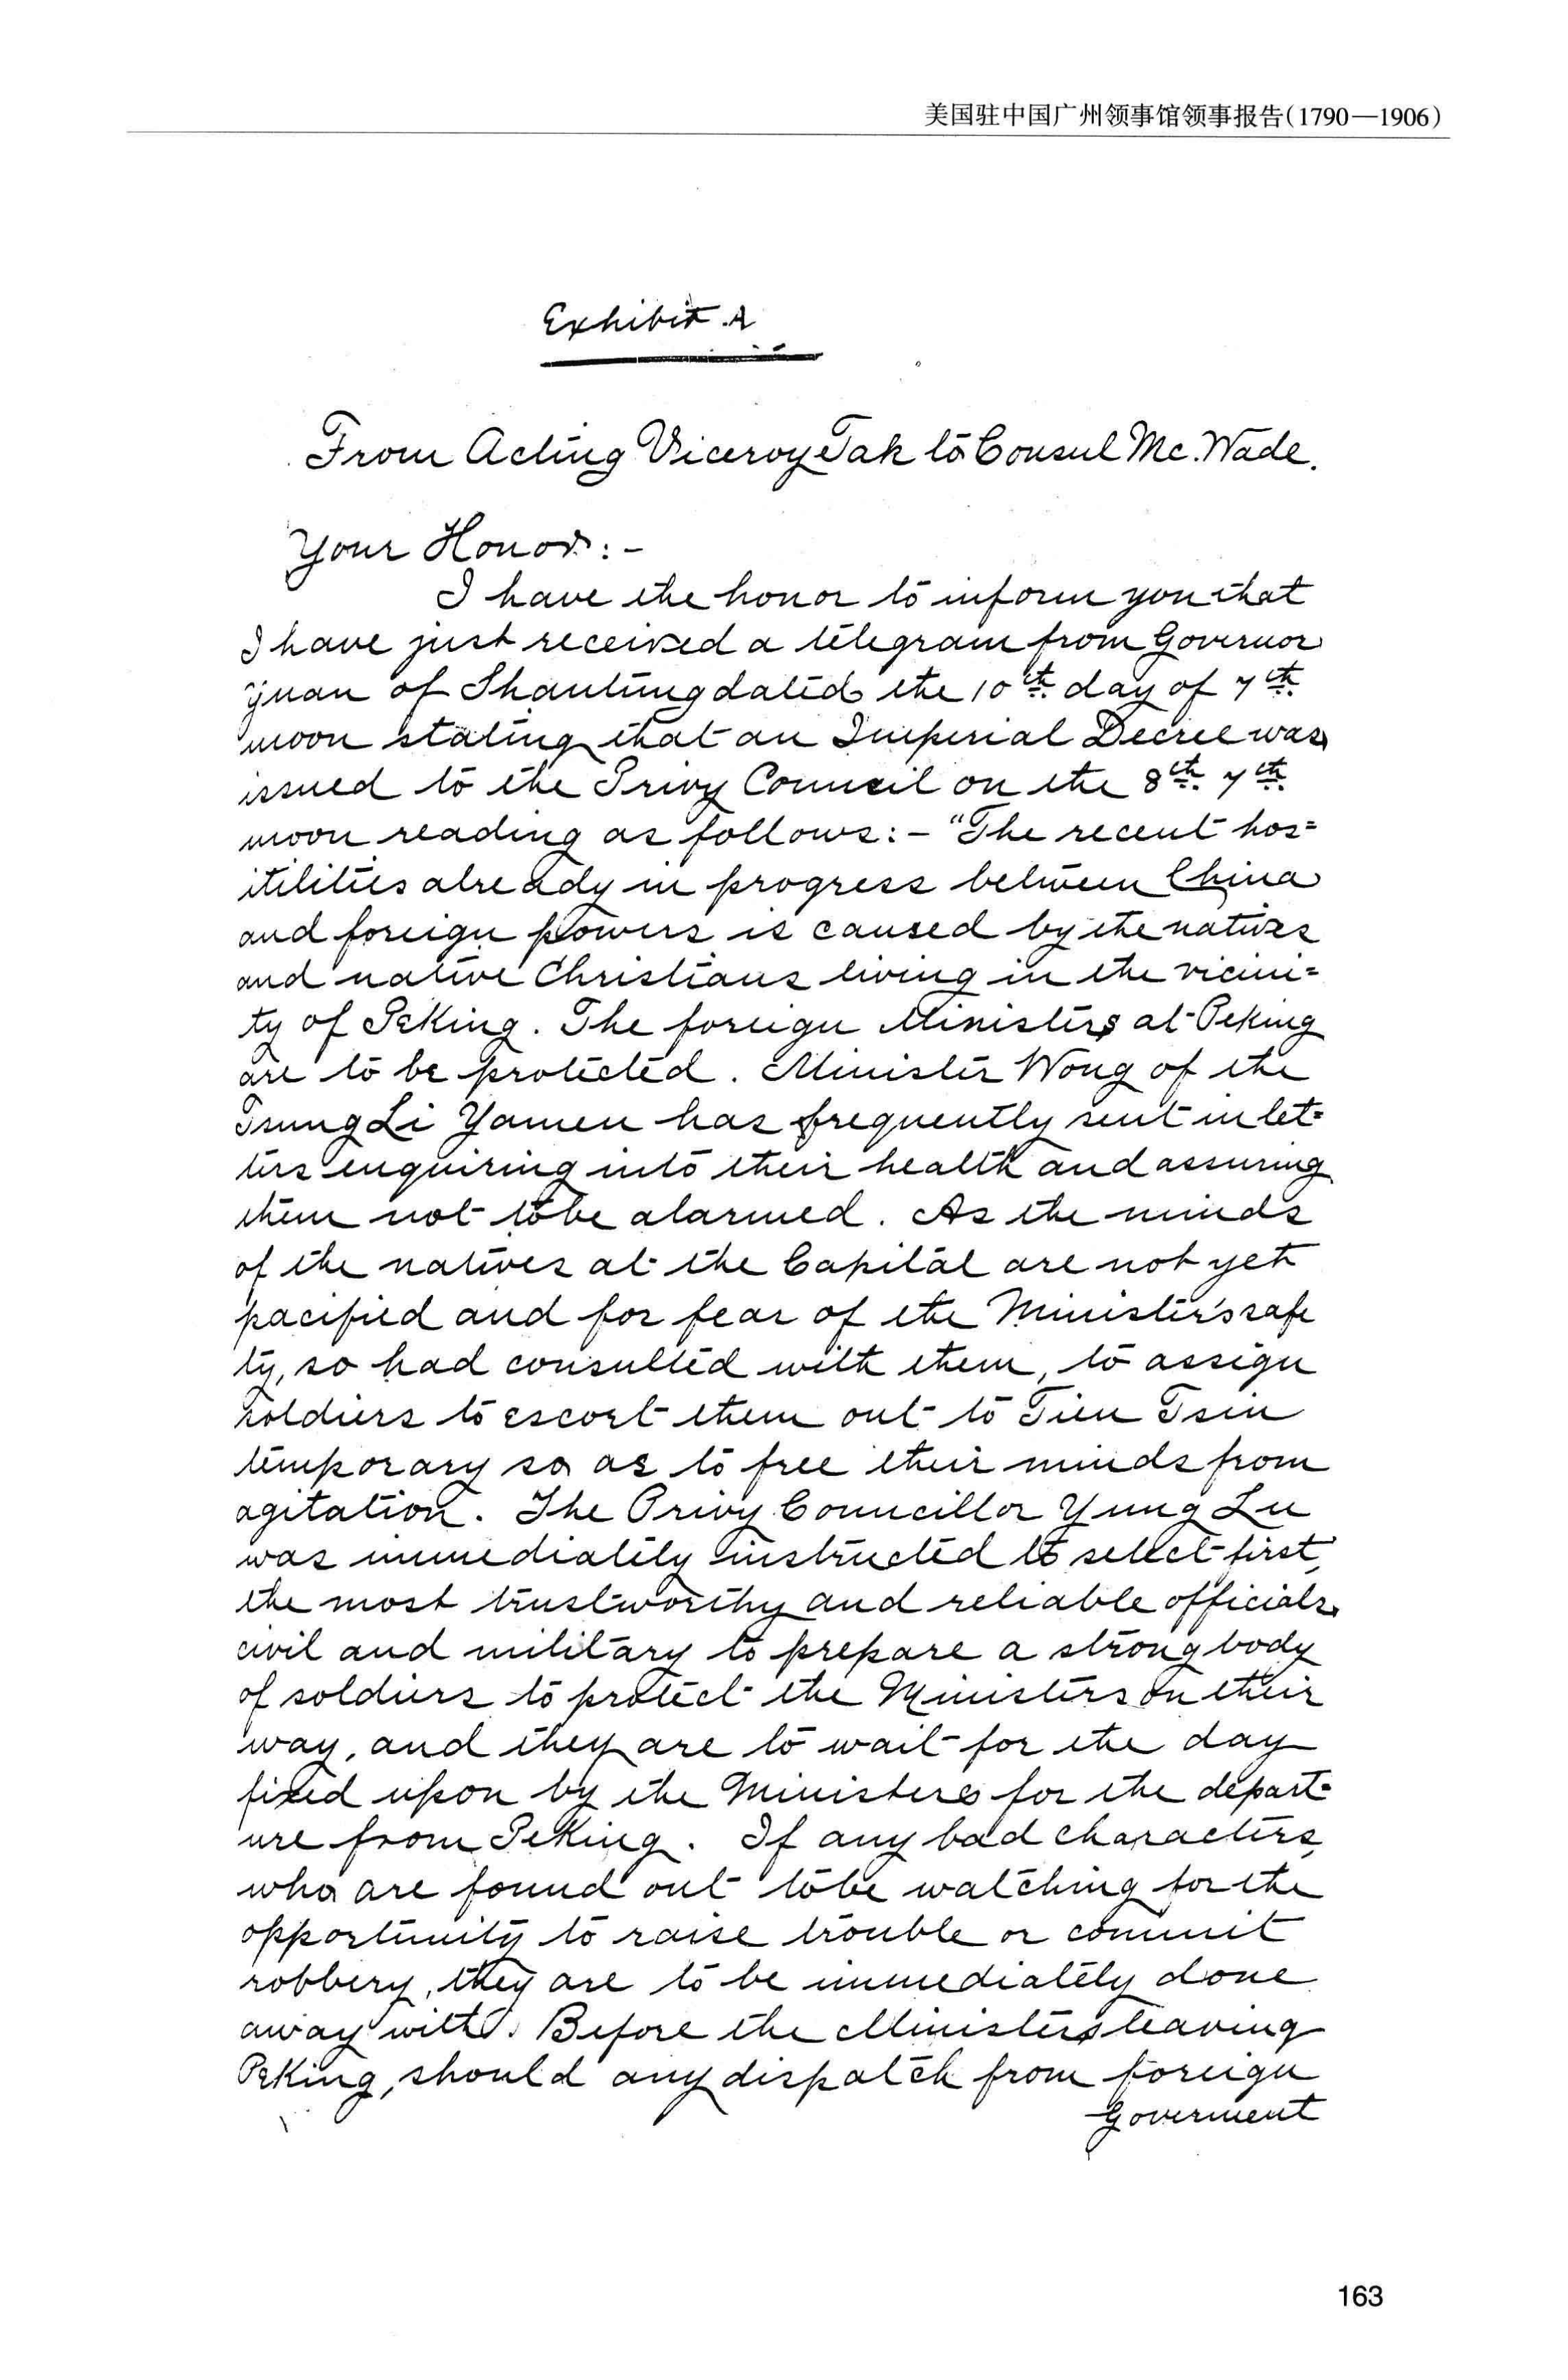 美国驻中国广州领事馆领事报告(1790—1906)
Exhibit A
From Acting Viceroy Tak to Consul Mc.Wade.
Your Honor:-
I have the honor to inform you that
I have just received a telegram from Governor
Yuan of Shantung dated the 10th. day of 7th.
moon stating that an Imperial Decree was
issued to the Privy Council on the 8th. 7th.
moon reading as follows:- "The recent hos=
tilities already in progress between China
and foreign powers is caused by the natives
and native Christians living in the vicini=
ty of Peking. The foreign Ministers at Peking
are to be protected. Minister Wong of the
Tsung Li Yamen has frequently sent in let=
ters enquiring into their health and assuring
them not to be alarmed. As the minds
of the natives at the Capital are not yet
pacified and for fear of the Minister's safe
ty, so had consulted with them, to assign
soldiers to escort them out to Tien Tsin
temporary so as to free their minds from
agitation. The Privy Councillor Yung Lu
was immediately instructed to select first,
the most trustworthy and reliable officials,
civil and military to prepare a strong body
of soldiers to protect the Ministers on their
way, and they are to wait for the day
fixed upon by the Ministers for the depart=
ure from Peking. If any bad characters,
who are found out to be watching for the
opportunity to raise trouble or commit
robbery, they are to be immediately done
away with. Before the Ministers leaving
Peking, should any dispatch from foreign
Goverment
163